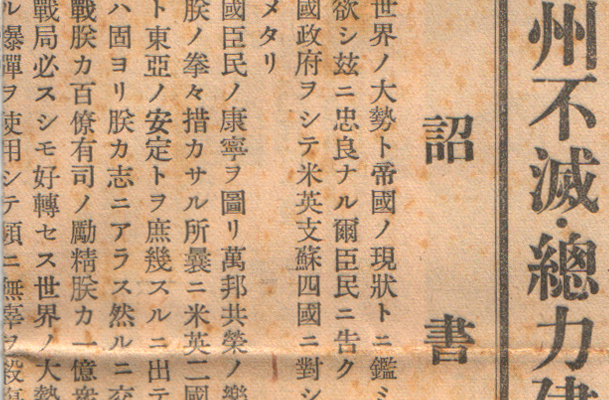 州不滅・總力建
詔書
世界ノ大勢ト帝國ノ現狀トニ鑑ミ
欲シ玆ニ忠良ナル爾臣民ニ告ク
國政府ヲシテ米英支蘇四國ニ對シ
メタリ
國臣民ノ康寧ヲ圖リ萬邦共榮ノ樂
朕ノ拳々措カサル所曩ニ米英二國
ト東亞ノ安定トヲ庶幾スルニ出テ
ハ固ヨリ朕カ志ニアラス然ルニ交
戰朕カ百僚有司ノ勵精朕カ一億衆
戰局必スシモ好轉セス世界ノ大勢
ル爆彈ヲ使用シテ頻ニ無辜ヲ殺傷